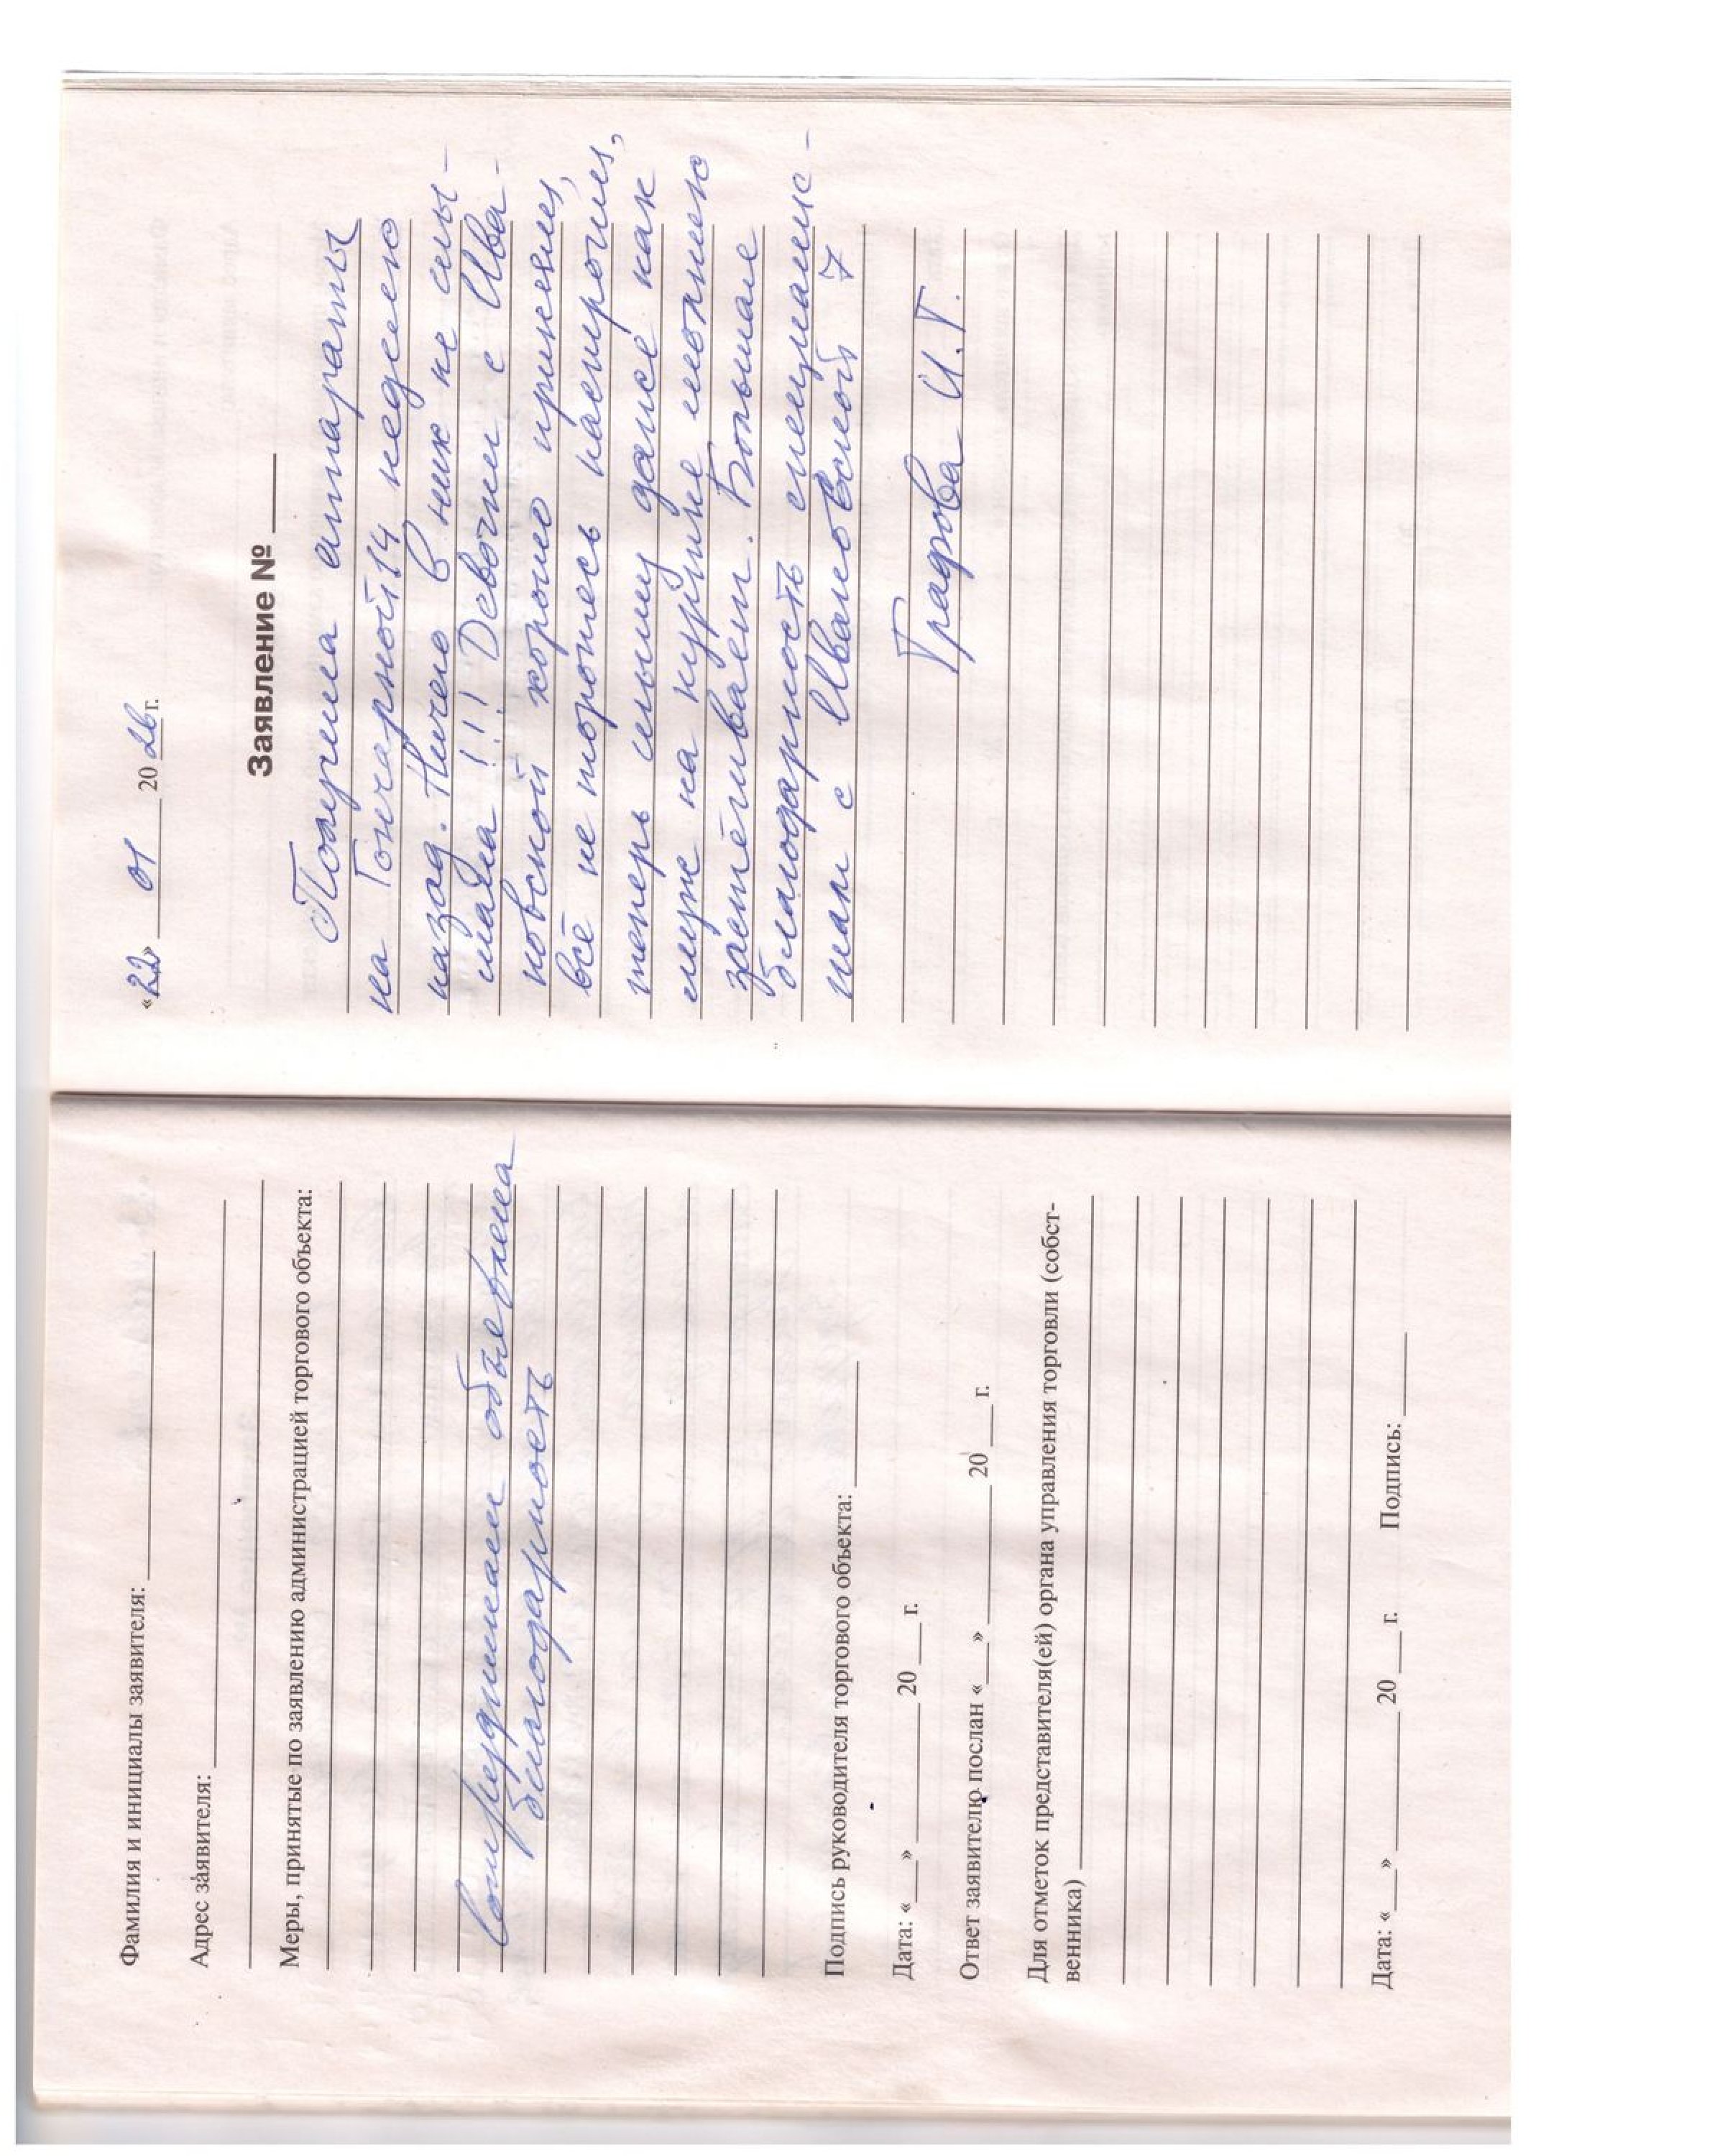 Фамилия и инициалы заявителя:
Адрес заявителя:
Меры, принятые по заявлению администрацией торгового объекта:
Сотрудникам объявлена
благодарность
Подпись руководителя торгового объекта:
Дата: «___» ________ 20 ___ г.
Ответ заявителю послан «___» ________ 20 ___ г.
Для отметок представителя(ей) органа управления торговли (собст-
венника)
Дата: «___» ________ 20 ___ г. Подпись:
«22» 01 20 26 г.
Заявление № ____
Получила аппараты
на Гончарной 14 неделею
назад. Ничего в них не слы-
шала!!! Девочки с Ива-
новской хорошо приняли,
всё не торопясь настроили,
теперь слышу даже как
муж на кухне молнию
застёгивает. Большае
благодарность специалис-
там с Ивановской 7
Графова И.Г.